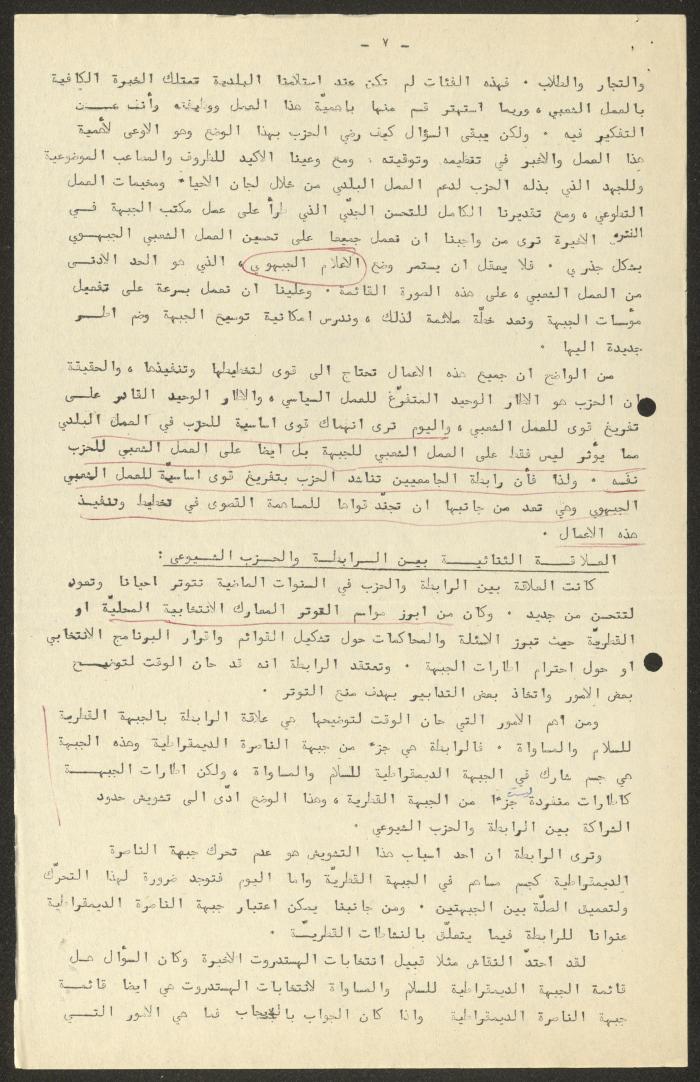 - ٧ -
والتجار والطلاب . فهذه الفئات لم تكن عند استلامنا البلدية تمتلك الخبرة الكافية
بالعمل الشعبي ، وربما استهتر قسم منها باهميّة هذا العمل ووظيفته وأنف عـــن
التفكير فيه . ولكن يبقى السؤال كيف رضي الحزب بهذا الوضع وهو الاوعى لأهمية
هذا العمل والاخبر في تنظيمه وتوقيته . ومع وعينا الاكيد للظروف والمصاعب الموضوعية
وللجهد الذي بذله الحزب لدعم العمل البلدي من خلال لجان الاحياء ومخيمات العمل
التطوعي ، ومع تقديرنا الكامل للتحسن الجدّي الذي طرأ على عمل مكتب الجبهة فــي
الفتره الاخيرة نرى من واجبنا ان نعمل جميعا على تحسين العمل الشعبي الجبهــوي
بشكل جذري . فلا يعقل ان يستمر وضع الاعلام الجبهوي ، الذي هو الحد الادنــى
من العمل الشعبي ، على هذه الصورة القائمة . وعلينا ان نعمل بسرعة على تفعيل
مؤسات الجبهة ونعد خطّة ملائمة لذلك ، وندرس امكانية توسيع الجبهة وضم اطــر
جديدة اليها .
من الواضح ان جميع هذه الاعمال تحتاج الى قوى لتخطيطها وتنفيذها ، والحقيقة
ان الحزب هو الاطار الوحيد المتفرّغ للعمل السياسي ، والاطار الوحيد القادر علــى
تفريغ قوى للعمل الشعبي ، واليوم نرى انهماك قوى اساسية للحزب في العمل البلدي
مما يؤثر ليس فقط على العمل الشعبي للجبهة بل ايضا على العمل الشعبي للحزب
نفسه . ولذا فأن رابطة الجامعيين تناشد الحزب بتفريغ قوى اساسيّة للعمل الشعبي
الجبهوي وهي تعد من جانبها ان تجنّد قواها للمساهمة القصوى في تخطيط وتنفيــذ
هذه الاعمال .
العلاقــة الثنائيــة بيــن الــرابطــة والحــزب الشيــوعي :
كانت العلاقة بين الرابطة والحزب في السنوات الماضية تتوتر احيانا وتعود
لتتحسن من جديد . وكان من ابرز مواسم التوتر المعارك الانتخابية المحليّة او
القطريّة حيث تبرز الاسئلة والمحاكمات حول تشكيل القوائم واقرار البرنامج الانتخابي
او حول احترام اطارات الجبهة . وتعتقد الرابطة انه قد حان الوقت لتوضيـــح
بعض الامور واتخاذ بعض التدابير بهدف منع التوتر .
ومن اهم الامور التي حان الوقت لتوضيحها هي علاقة الرابطة بالجبهة القطرية
للسلام والمساواة . فالرابطة هي جزء من جبهة الناصرة الديمقراطية وهذه الجبهة
هي جسم شارك في الجبهة الديمقراطية للسلام والمساواة ، ولكن اطارات الجبهــة
كاطارات منفردة ليست جزءا من الجبهة القطرية ، وهذا الوضع ادّى الى تشويش حدود
الشراكة بين الرابطة والحزب الشيوعي .
وترى الرابطة ان احد اسباب هذا التشويش هو عدم تحرك جبهة الناصرة
الديمقراطية كجسم مساهم في الجبهة القطريّة واما اليوم فتوجد ضرورة لهذا التحرّك
ولتعميق الصلّة بين الجبهتين . ومن جانبنا يمكن اعتبار جبهة الناصرة الديمقراطية
عنوانا للرابطة فيما يتعلّق بالنشاطات القطريــّة .
لقد احتدّ النقاش مثلا قبيل انتخابات الهستدروت الاخيرة وكان السؤال هــل
قائمة الجبهة الديمقراطية للسلام والمساواة لانتخابات الهستدروت هي ايضا قائمــة
جبهة الناصرة الديمقراطية واذا كان الجواب بالايجاب فما هي الامور التــي